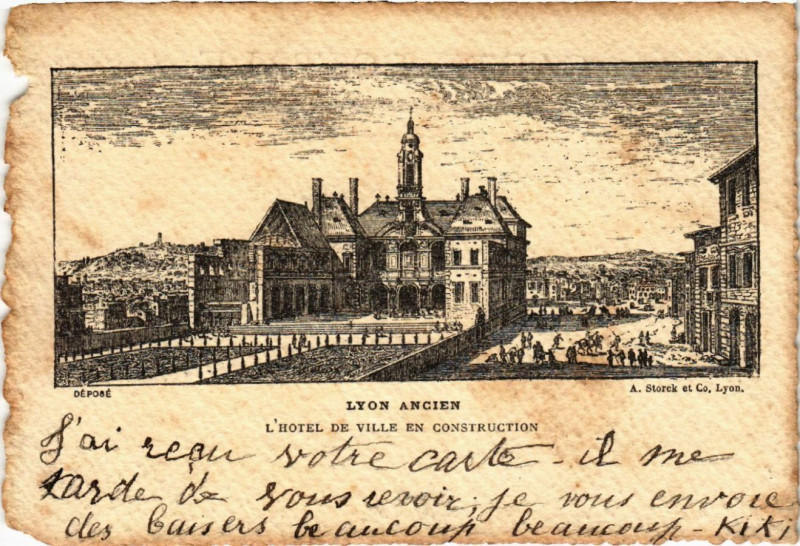 DÉPOSÉ
A. Storck et Co, Lyon.
LYON ANCIEN
L'HOTEL DE VILLE EN CONSTRUCTION
J'ai reçu votre carte - il me
tarde de vous revoir; je vous envoie
des baisers beaucoup beaucoup - KiKi